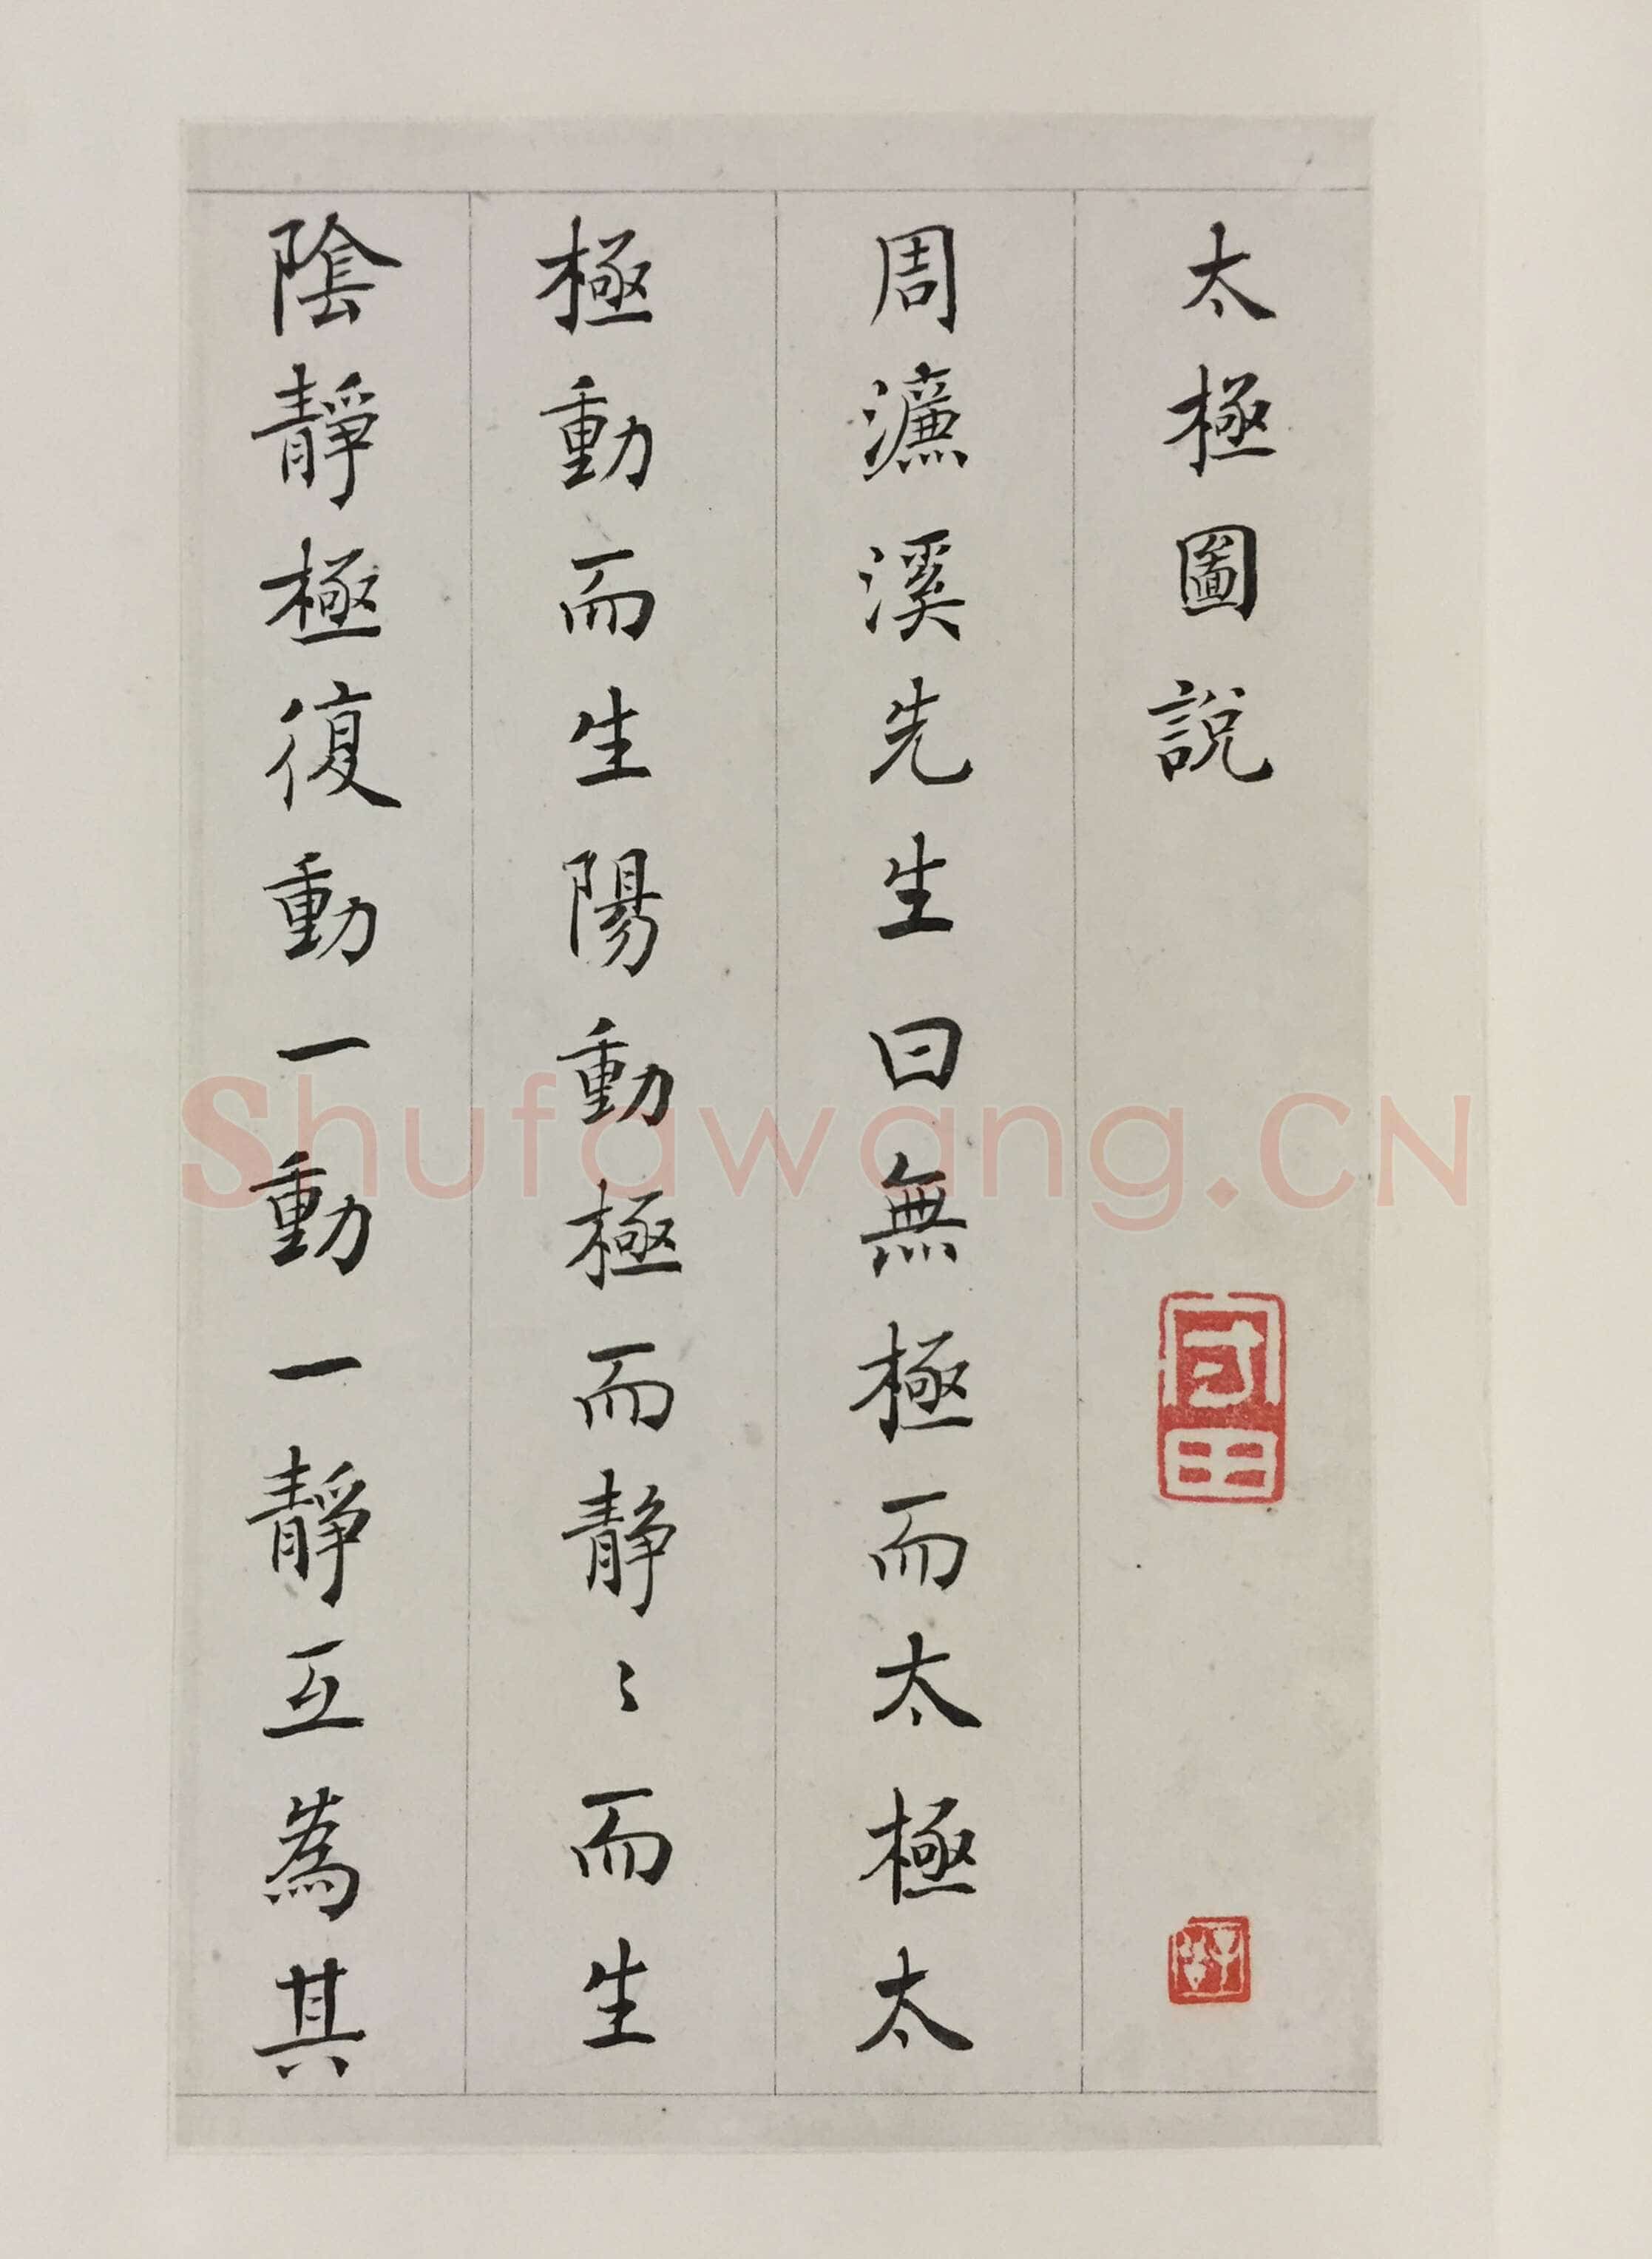 太極圖說
周濂溪先生曰無極而太極太
極動而生陽動極而静〻而生
陰靜極復動一動一靜互為其
Shufawang.CN